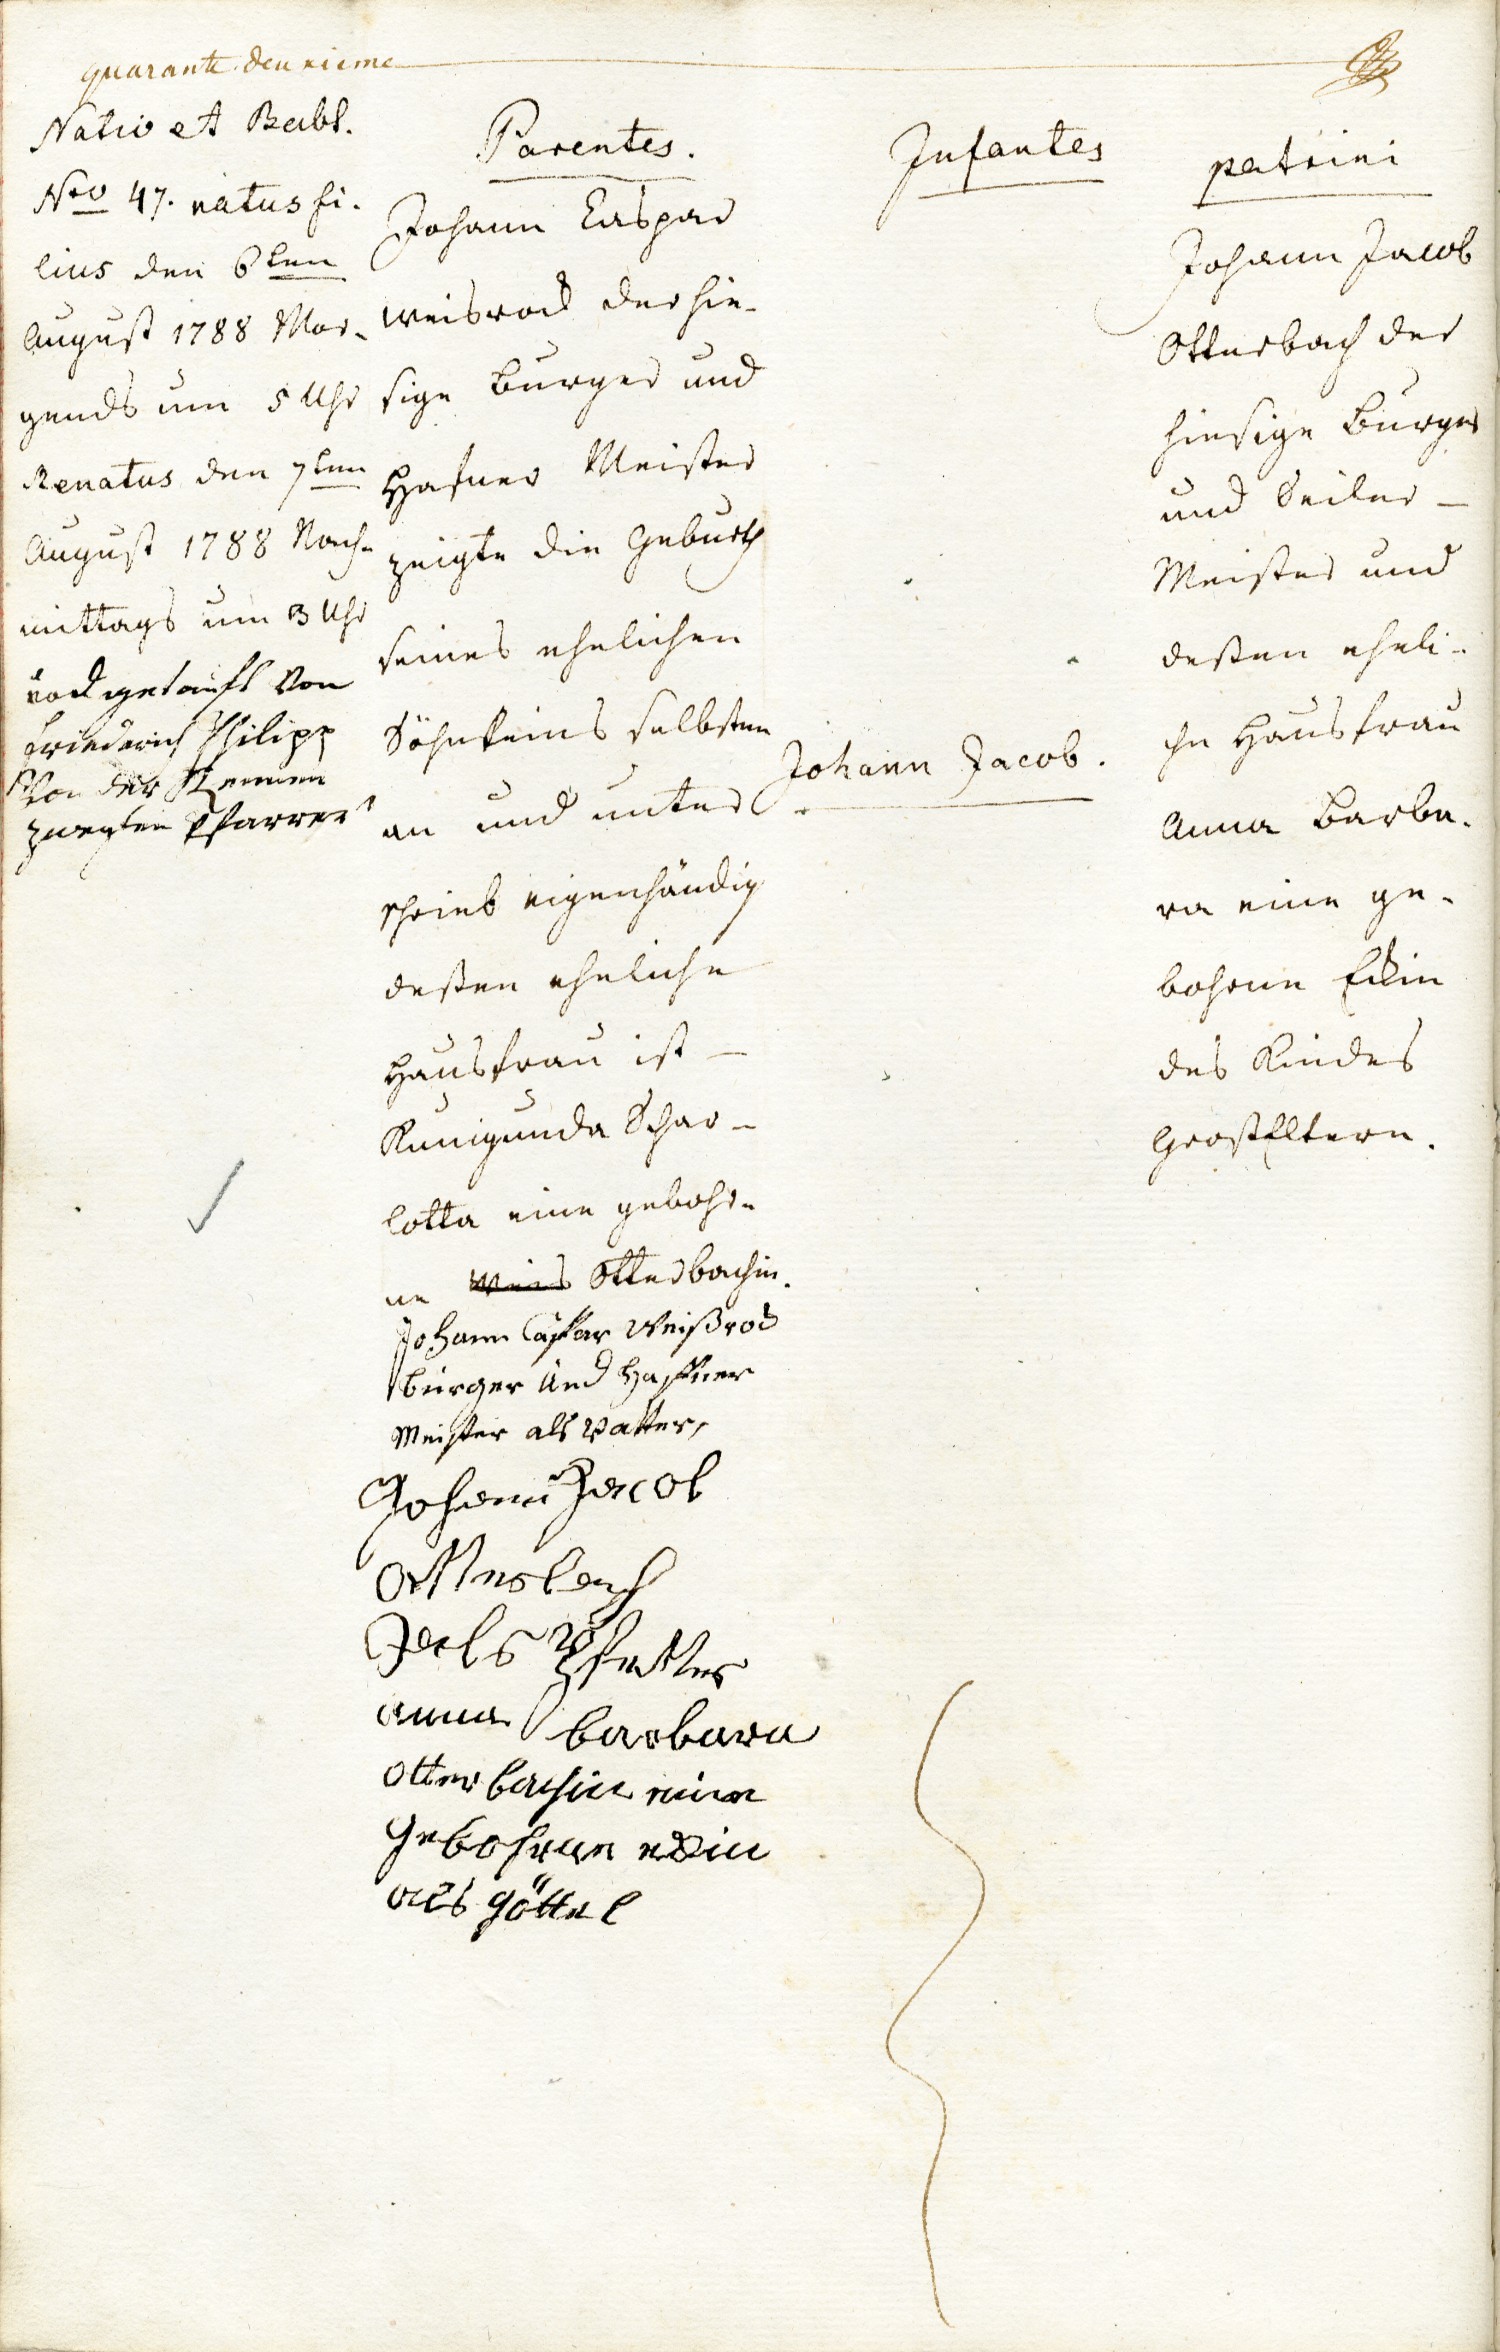 quarante deuxieme
Nativ et Babt.
Nro 47. natus fi-
lius den 6ten
August 1788 Mor-
gends um 5 Uhr
Renatus den 7ten
August 1788 Nach-
mittags um 3 Uhr
ward getauft von
Friederich Philipp
von der
zweyten Pfarrer
Parentes.
Johann Caspar
Weisrod der hie-
sige Burger und
Hafner Meister
zeigte die Geburth
seines ehelichen
Söhnleins selbsten
an und unter
schrieb eigenhändig
deßen eheliche
Hausfrau ist –
Kunigunda Schar-
lotta eine gebohr-
ne Weis Otterbachin.
Johann Casspar Weißrod
bürger und Haffner
Meister als Vatter,
Johann Jacob
Otterbach
Jals Pfetter
anna barbara
otterbachin eine
gebohrne eckin
als göttel
Infantes
Johann Jacob.
patrini
Johann Jacob
Otterbach der
hiesige Burger
und Seiler –
Meister und
deßen eheli-
che Hausfrau
Anna Barba-
ra eine ge-
bohrne Eckin
des Kindes
GrosEltern.